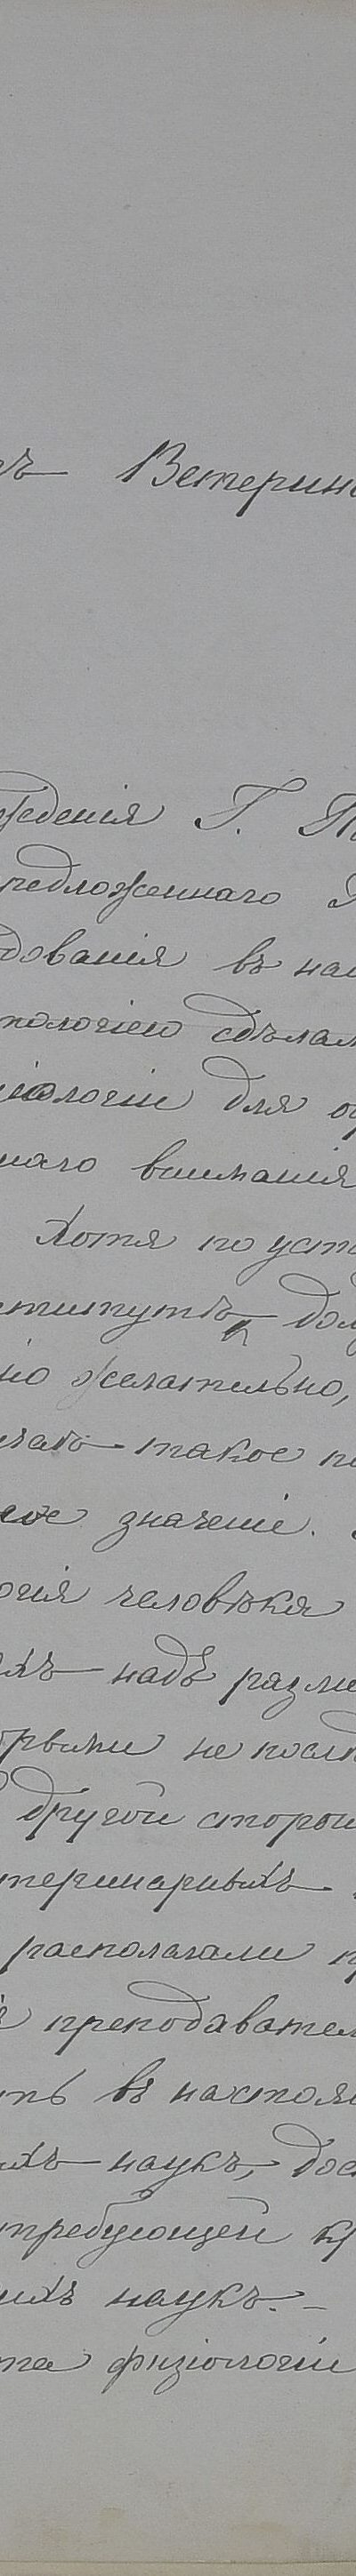 тъ Ветерина
жденія Г. По
редложеннаго
дованія въ на
пологіею сдѣлал
іологіи для о
наго вниманія
Хотя по уста
ститутъ дол
но желательно,
такое п
значеніе.
огія человѣка
ихъ надъ разли
орвыми не послѣ
другой сторон
теринарныхъ
располагали п
преподавател
ть въ настоя
ихъ наукъ, дос
требующей к
ихъ наукъ.—
та физіологіи